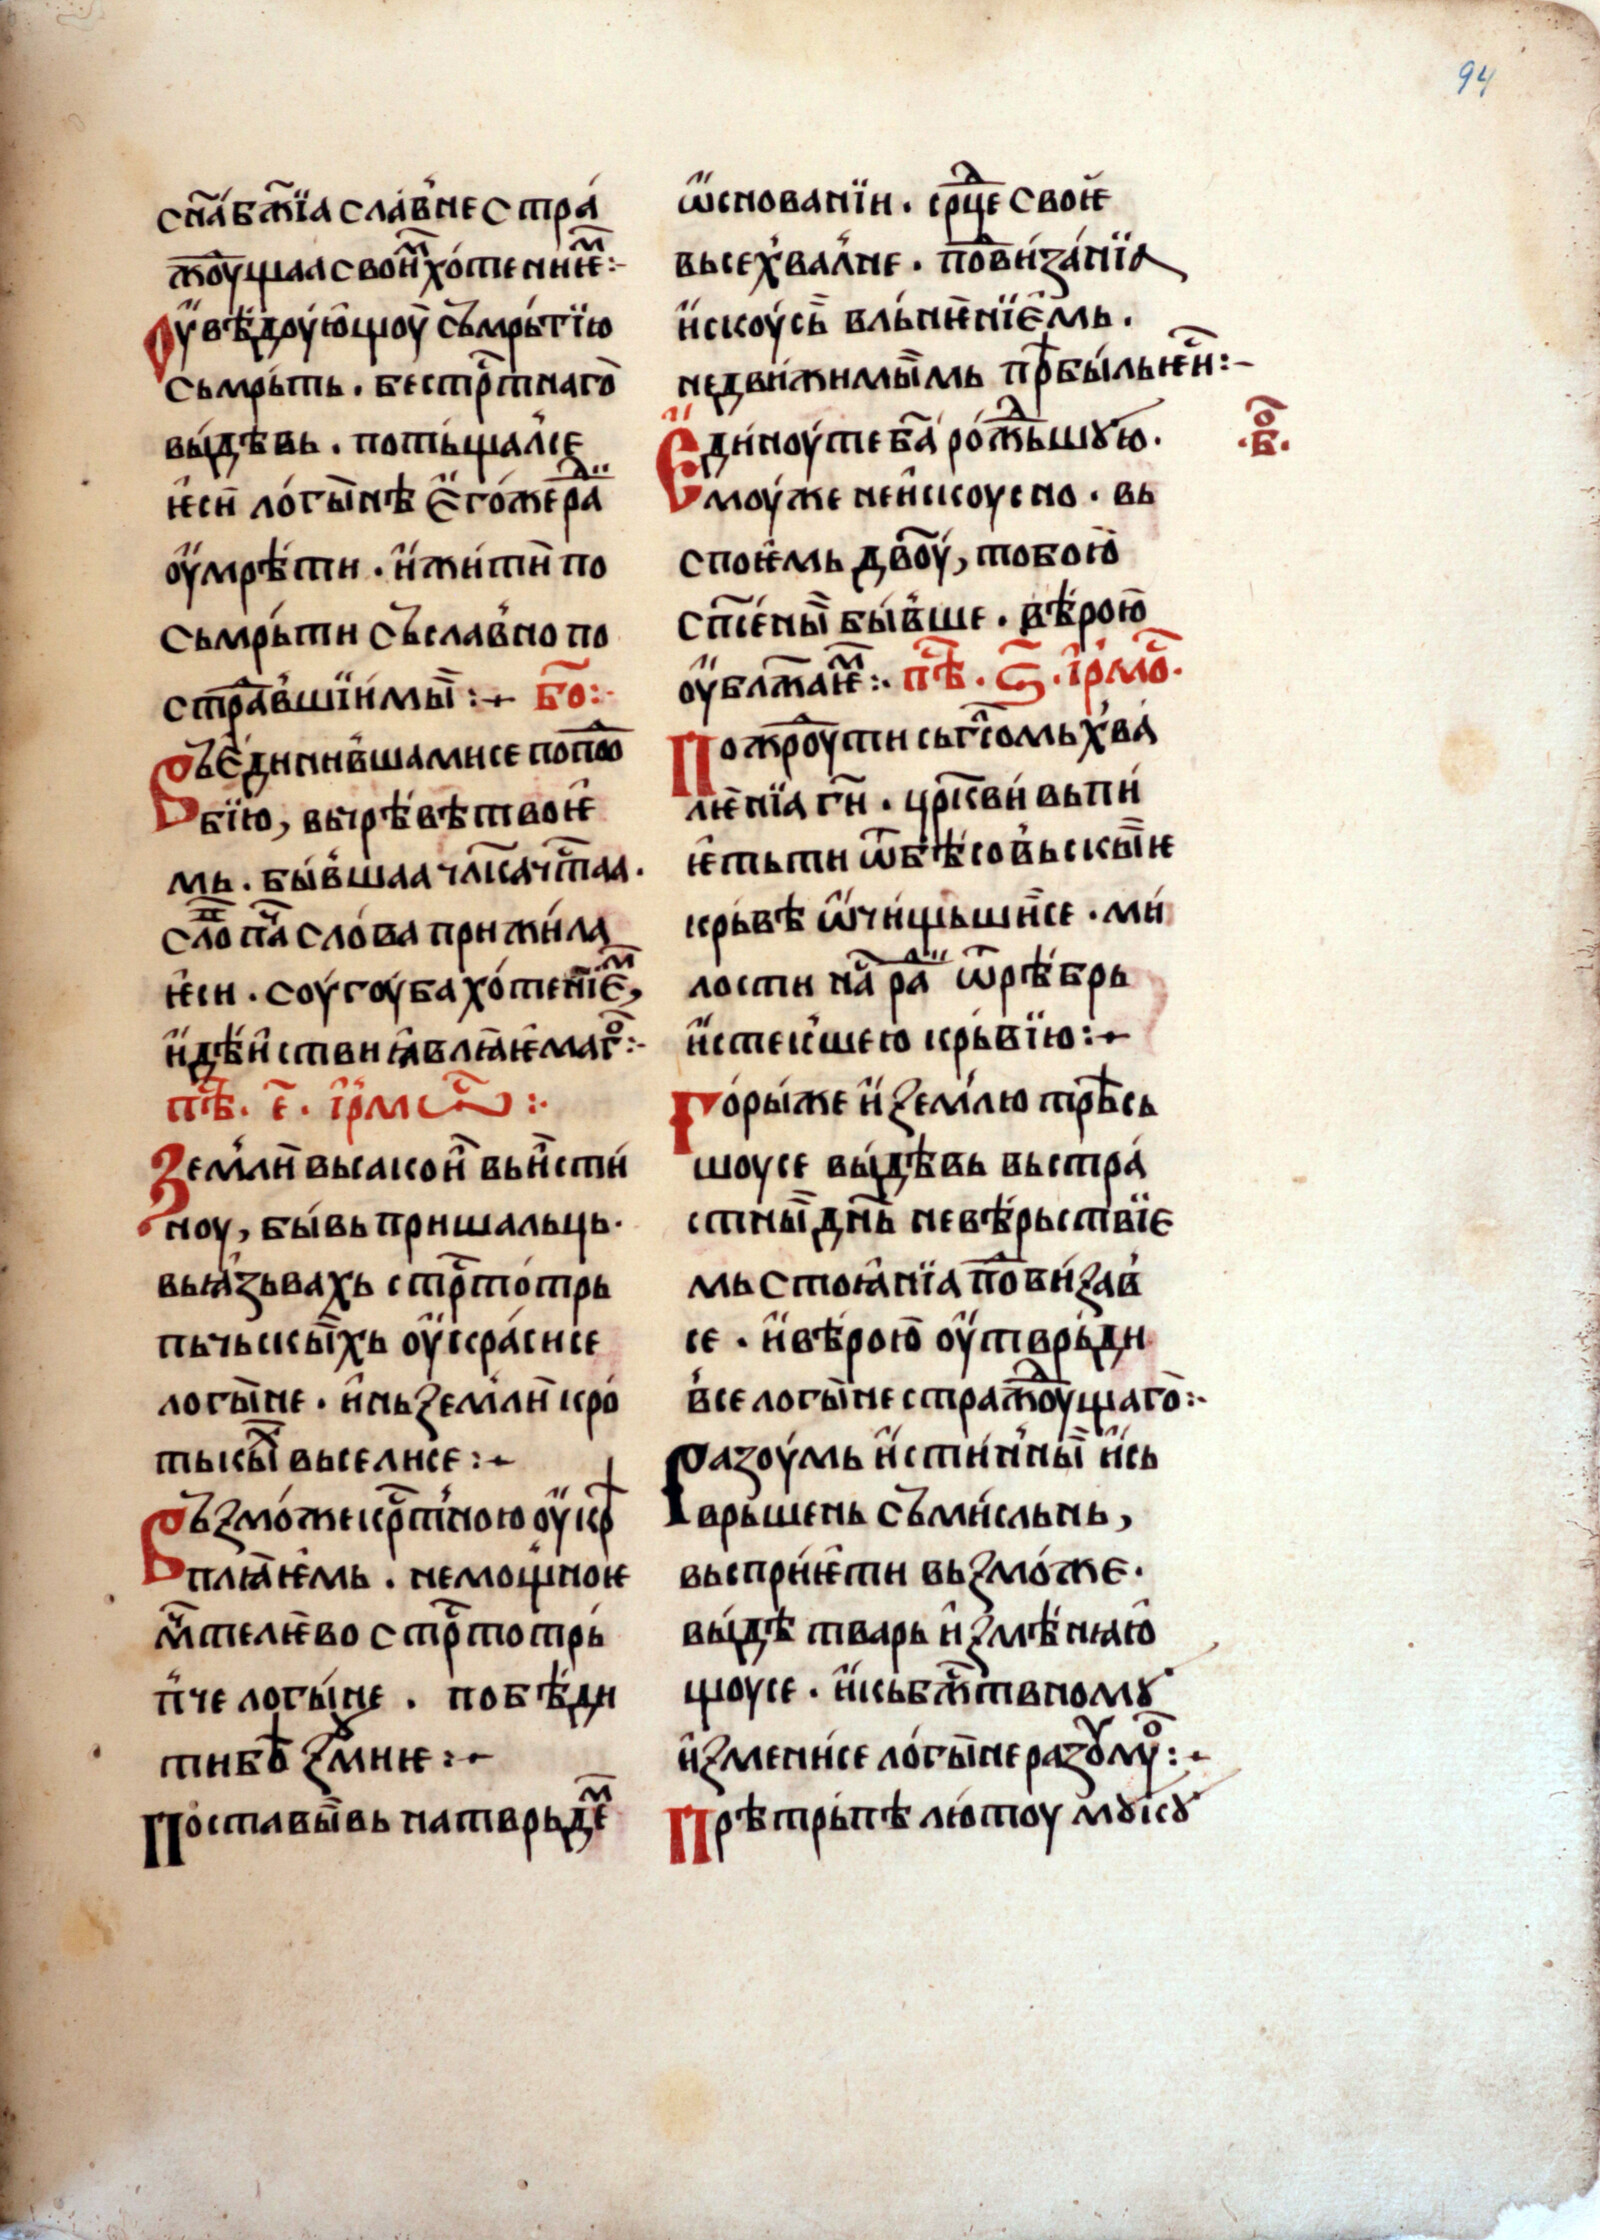 94
сн҃абж҃їа сла́вне стра́
ж҃оущаа свои̑мⷨ хо́тенниѥⷨ:⁓
Оу̑вѣ́доую̑щоу̑ съмрь́тїю
сьмрь́ть. бестрⷭ҇тнаго
вы́дѣвь. потьщалсе
ѥ̑си ло́гы̑нѣ є̑го́же раⷣи
оу̑мрѣ́ти. и̑жи́ти по
сьмрь́ти съславно по
страⷣавшїимы̑:⁓ Бо҃:⁓
Въє̑динившамисе попоⷣо
бїю, вьчрѣ́вѣ твоѥ̑
мь. бы́вшаа чл҃кꙋачⷭ҇таа.
Сло́ во пⷱа сло́ва прижи́ла
ѥ̑си. соугоу́ба хо́тенїє̑мⷨ,
и̑дѣ́и̑стви ꙗ̑влꙗ̑ѥ̑магⷪ:⁓
пѣⷭ҇. е҃. і̑рмѡⷭ҇:⁓
Земли̑ вьсакои̑ вьи̑сти́
ноу, бы́вь пришальць.
вьꙗ́зьвахь стрⷭ҇то́трь
пьчьскы̑хь оу̑ кра́сисе
логы̑не. и̑ньземли̑ кро́
тькы̑х вьселисе:⁓
Възмо́же крⷭ҇т́ною оу̑крⷺ
плꙗ̑ѥ̑мь. немощ́ноѥ
мⷱ҇телѥ́во стрⷭ҇то трь́
п́че логы́не. побѣ́ди
тибо зⷨмиѥ:⁓
Поставы̑вь натврьдєⷨ
ѡ̑сновании. срⷣце своѥ̑
вьсех́вал́не. поⷣви́за́нїа
и̑скоу́сь̑ влы́нѥ̑нїє̑мь.
недвижимы̑мь прⷺбы́льѥⷭ҇и:⁓
·в҃·
Єди́ноу́ тебⷭ҇а рожⷣьшꙋю.
є̑моу́же неи̑скоусно. вь
споѥ̑мь дв҃оу́, тобою̑
сп҃се́ны̑ бы́вше. вѣ́рою̑
оу̑блж҃аѥⷨ:⁓ пѣⷭ҇. ѕ҃. і̑рмоⷭ҇.
Пожроути сьглⷭ҇омьх́ва́
лѥ́нїа ги҃. цр҃кви вьпи́
ѥ̑тьти ѿбѣ́совьскы̑ѥ
крь́вѣ ѡ̑чи́щьши̑се. ми́
лости на́ раⷣи ѿрѣ́брь
и̑стеќшею крь́вїю:⁓
Го́ры́же и̑ землю трⷺсь
шоусе вы́дѣвь вьстра́
стны̑ дн҃ь невѣ́рьствїє
мь стоꙗ̑нїа поⷣви́зав
се. и̑вѣ́рою̑ оу̑тврь́ди
в́се логы̑не стражⷣоущаго̑:⁓
Разоу́мь и̑сти́н́ны̑ и̑сь
врьшень съми́сльнь,
вьспри́ѥти вьзмо́же.
вы́дѣ тварь и̑змѣ́нꙗю̑
щоусе. и̑кьбжⷭ҇твному
и̑змени́се ло́гы̑не разꙋмꙋⷪ:⁓
Прѣтрь́пѣ лю́тоу мꙋкꙋ